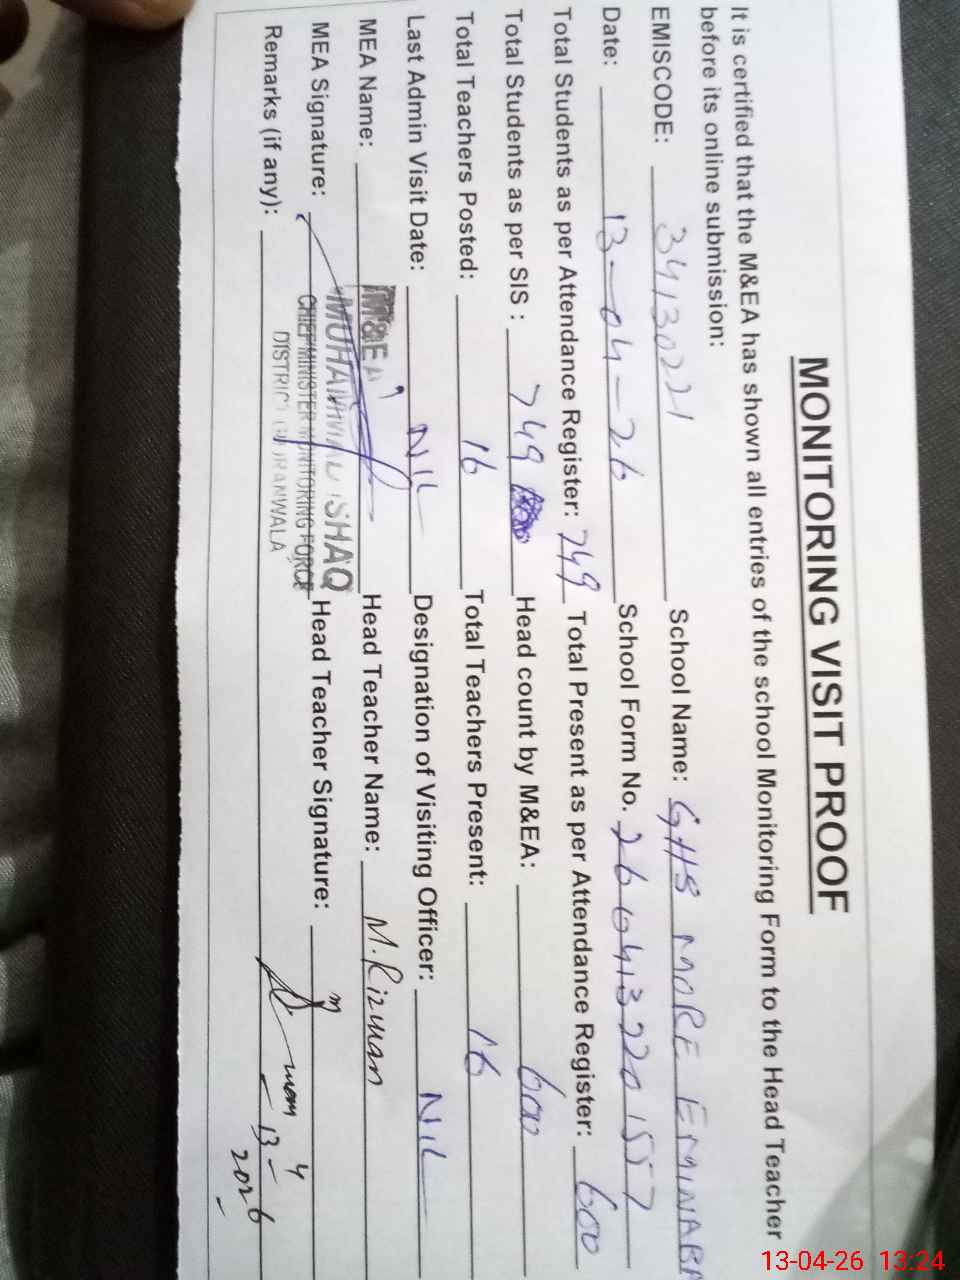 MONITORING VISIT PROOF
It is certified that the M&EA has shown all entries of the school Monitoring Form to the Head Teacher
before its online submission:
EMISCODE: 34130221 School Name: GHS MORE EMINABA
Date: 13-04-26 School Form No. 2604132201557
Total Students as per Attendance Register: 749 Total Present as per Attendance Register: 600
Total Students as per SIS : 749 Head count by M&EA: 600
Total Teachers Posted: 16 Total Teachers Present: 16
Last Admin Visit Date: NIL Designation of Visiting Officer: NIL
MEA Name: M&EA Head Teacher Name: M. Rizwan
MUHAMMAD ISHAQ
MEA Signature: CHIEF MINISTER MONITORING FORCE Head Teacher Signature:
DISTRICT GUJRANWALA
Remarks (if any): 13-4
2026
13-04-26 13:24